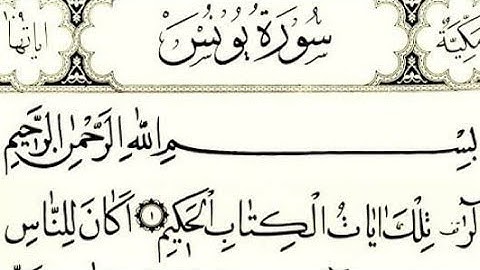 مكية سورة يونس آياتها ١٠٩
بِسْمِ اللهِ الرَّحْمٰنِ الرَّحِيمِ
الٓرٰ تِلْكَ اٰيَاتُ الْكِتَابِ الْحَكِيمِ ١ اَكَانَ لِلنَّاسِ